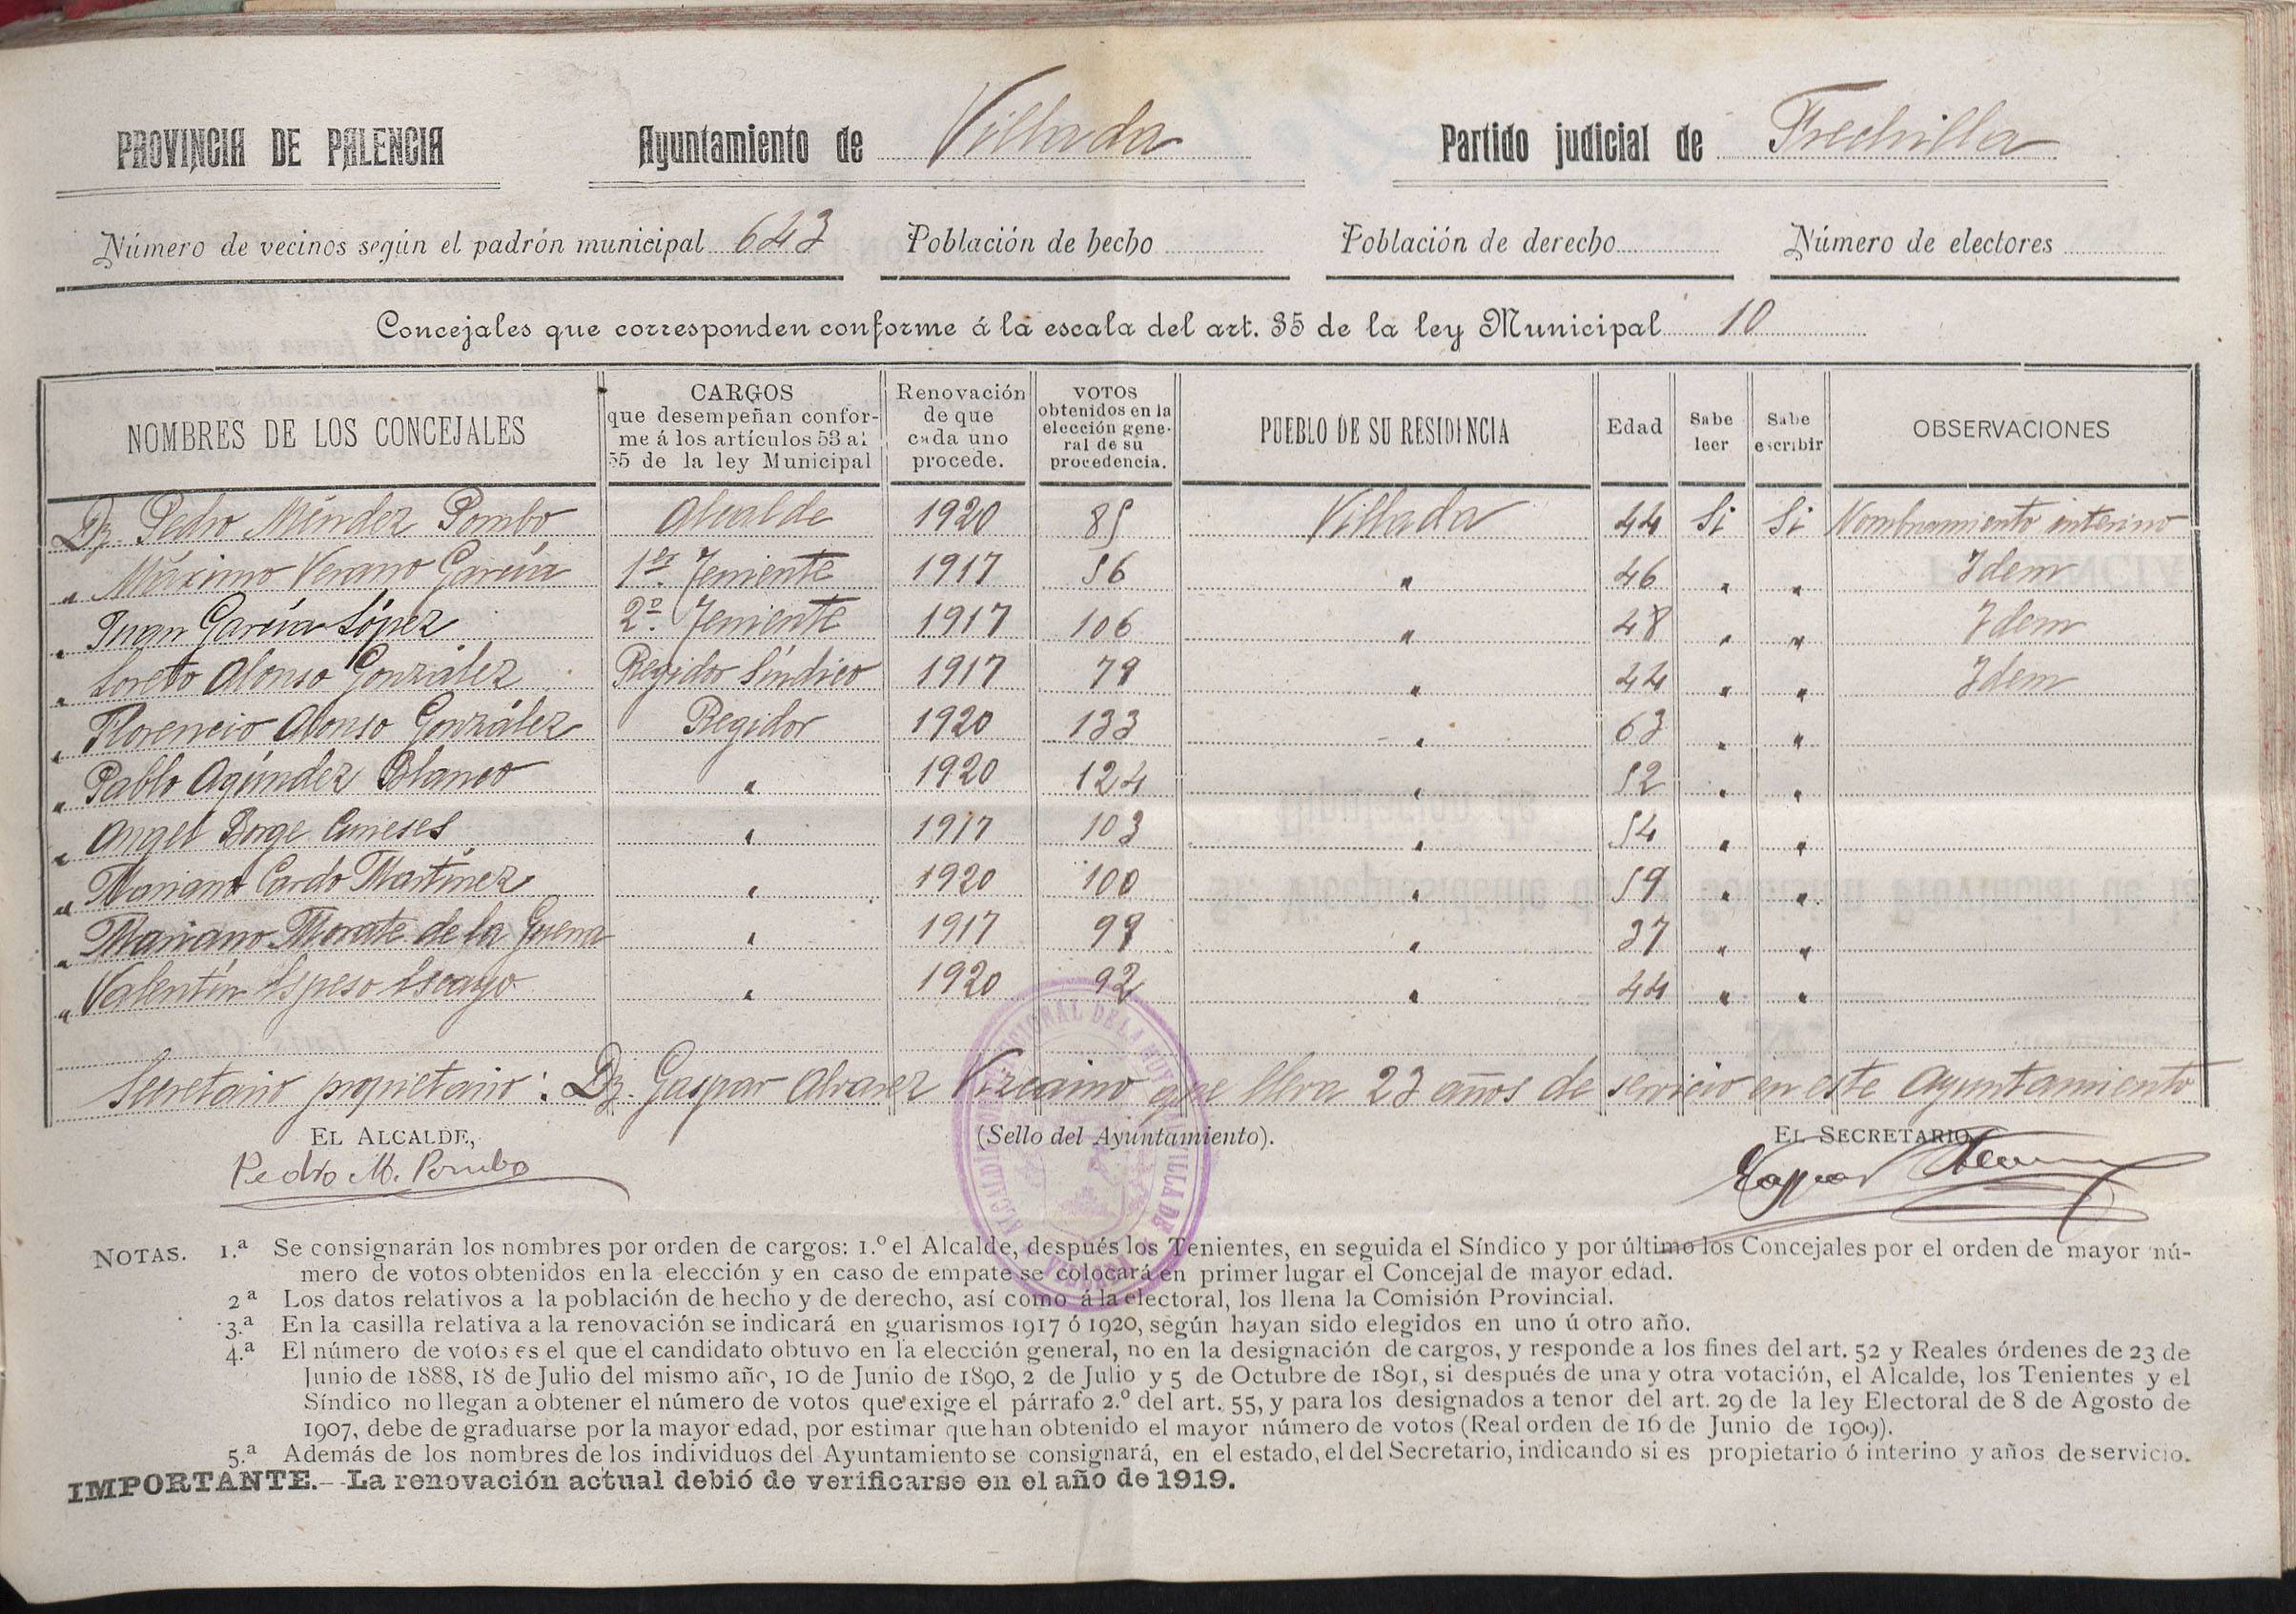 PROVINCIA DE PALENCIA Ayuntamiento de Villada Partido judicial de Frechilla
Número de vecinos según el padrón municipal 643 Población de hecho Población de derecho Número de electores
Concejales que corresponden conforme á la escala del art. 35 de la ley Municipal 10
NOMBRES DE LOS CONCEJALES
CARGOS
que desempeñan confor-
me á los artículos 53 al
55 de la ley Municipal
Renovación
de que
cada uno
procede.
VOTOS
obtenidos en la
elección gene-
ral de su
procedencia.
PUEBLO DE SU RESIDENCIA
Edad
Sabe
leer
Sabe
escribir
OBSERVACIONES
Dn. Pedro Méndez Pombo Alcalde 1920 85 Villada 44 Si Si Nombramiento interino
" Máximo Verano García 1er. Teniente 1917 56 " 46 " " Idem
" Juan García López 2º. Teniente 1917 106 " 48 " " Idem
" Loreto Alonso González Regidor Síndico 1917 79 " 44 " " Idem
" Florencio Alonso González Regidor 1920 133 " 63 " "
" Pablo Agúndez Blanco " 1920 124 " 52 " "
" Angel Borge Cuneses " 1917 103 " 54 " "
" Mariano Pardo Martínez " 1920 100 " 59 " "
" Mariano Morate de la Guerra " 1917 99 " 37 " "
" Valentín Espeso Escayo " 1920 92 " 44 " "
Secretario propietario: Dn. Gaspar Alvarez Vizcaino que lleva 23 años de servicio en este Ayuntamiento
EL ALCALDE, (Sello del Ayuntamiento). EL SECRETARIO,
Pedro M. Pombo
NOTAS. 1.ª Se consignarán los nombres por orden de cargos: 1.º el Alcalde, después los Tenientes, en seguida el Síndico y por último los Concejales por el orden de mayor nú-
mero de votos obtenidos en la elección y en caso de empate se colocará en primer lugar el Concejal de mayor edad.
2ª Los datos relativos a la población de hecho y de derecho, así como á la electoral, los llena la Comisión Provincial.
3.ª En la casilla relativa a la renovación se indicará en guarismos 1917 ó 1920, según hayan sido elegidos en uno ú otro año.
4.ª El número de votos es el que el candidato obtuvo en la elección general, no en la designación de cargos, y responde a los fines del art. 52 y Reales órdenes de 23 de
Junio de 1888, 18 de Julio del mismo año, 10 de Junio de 1890, 2 de Julio y 5 de Octubre de 1891, si después de una y otra votación, el Alcalde, los Tenientes y el
Síndico no llegan a obtener el número de votos que exige el párrafo 2.º del art. 55, y para los designados a tenor del art. 29 de la ley Electoral de 8 de Agosto de
1907, debe de graduarse por la mayor edad, por estimar que han obtenido el mayor número de votos (Real orden de 16 de Junio de 1909).
5.ª Además de los nombres de los individuos del Ayuntamiento se consignará, en el estado, el del Secretario, indicando si es propietario ó interino y años de servicio.
IMPORTANTE.—La renovación actual debió de verificarse en el año de 1919.